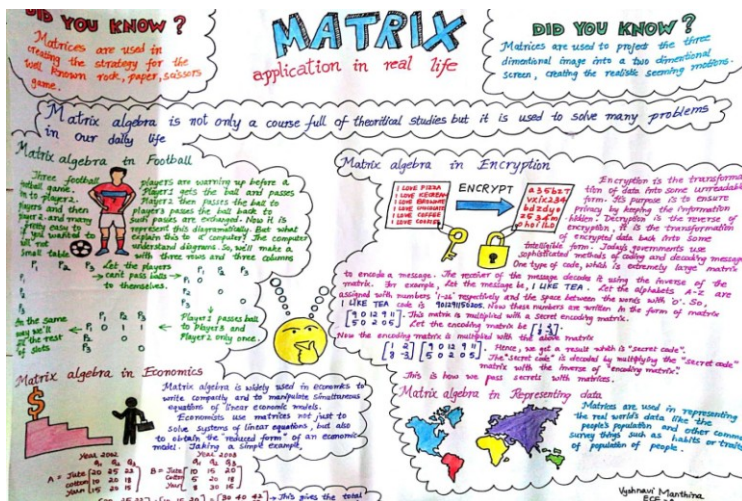 DID YOU KNOW ?
Matrices are used in
creating the strategy for the
well known rock, paper, scissors
game.
MATRIX
application in real life
DID YOU KNOW ?
Matrices are used to project the three
dimentional image into a two dimentional
screen, creating the realistic seeming motions.
Matrix algebra is not only a course full of theoritical studies but it is used to solve many problems
in our daily life
Matrix algebra in Football
Three football players are warming up before a
football game. Player 1 gets the ball and passes
it to player 2. Player 2 then passes the ball to
players and then players passes the ball back to
player 2. and many such passes are exchanged. Now it is
pretty easy to represent this diagramatically. But what
if you wanted to explain this to a computer? The computer
will not understand diagrams. So, we'll make a
small table with three rows and three columns
P1 P2 P3
P1
P2
P3
Let the players
cant pass balls
to themselves.
P1 P2 P3
P1 0
P2 0
P3 0
In the same
way we'll
fill the rest
of slots
P1 P2 P3
P1 0 1 1
P2 0
P3 0
Player 1 passes ball
to Player 3 and
Player 2 only once.
Matrix algebra in Economics
$
Matrix algebra is widely used in economics to
write compactly and to manipulate simultaneous
equations of linear economic models.
Economists use matrices not just to
solve systems of linear equations, but also
to obtain the "reduced form" of an economic
model. Taking a simple example,
Year 2002
Year 2003
A = Jute
cotton
yarn
B = Jute
Cotton
Year
10 15 20
5 20 18
8 30 15
This gives the total
Matrix algebra in Encryption
I LOVE PIZZA
I LOVE KOREAN
I LOVE
I LOVE CHOCOLATE
I LOVE COFFEE
I LOVE COOKIES
ENCRYPT
Encryption is the transforma
tion of data into some unreadable
form. Its purpose is to ensure
privacy by keeping the information
hidden. Decryption is the reverse of
encryption, it is the transformation
of encrypted data back into some
intelligible form. Today's governments use
sophisticated methods of coding and decoding messages
One type of code, which is extremely large matrix
to encode a message. The receiver of the message decodes it using the inverse of the
matrix. For example, Let the message be, I LIKE TEA. Let the alphabets A-Z are
assigned with numbers '1-26' respectively and the space between the words with '0'. So,
I LIKE TEA code is 9012911502051. Now these numbers are written in the form of matrix
9 0 12 9 11
5 0 2 0 5
This matrix is multiplied with a secret encoding matrix.
Let the encoding matrix be
Now the encoding matrix is multiplied with the above matrix
9 0 12 9 11
5 0 2 0 5
Hence, we get a result which is "secret code".
The "secret code" is decoded by multiplying the "secret code"
matrix with the inverse of "encoding matrix".
This is how we pass secrets with matrices.
Matrix algebra in Representing data
Matrices are used in representing
the real world's data like the
people's population and other common
survey things such as habits or traits
of population of people.
Vyshnavi Manthina